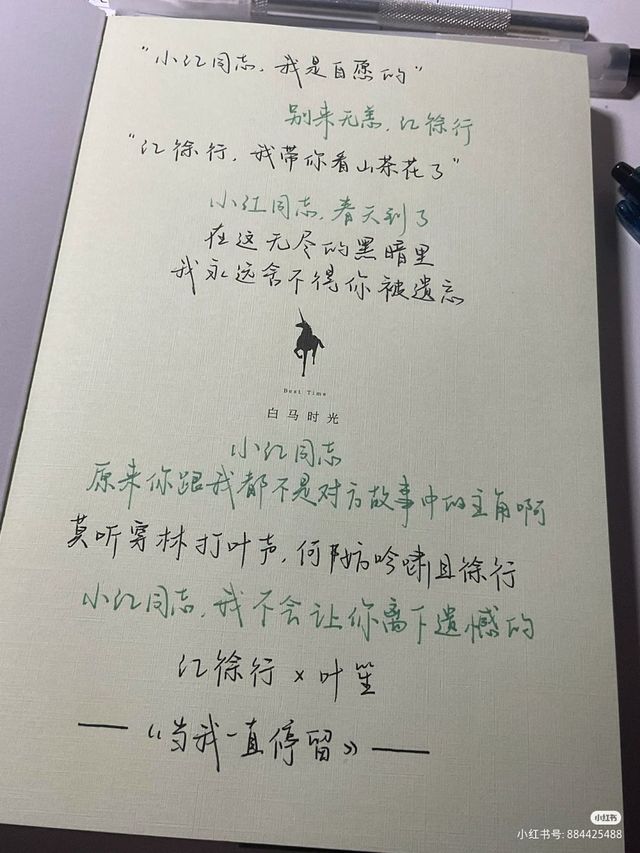 “小江同志,我是自愿的”
别来无恙,江徐行
“江徐行,我带你看山茶花了”
小江同志,春天到了
在这无尽的黑暗里
我永远舍不得你被遗忘
Best Time
白马时光
小江同志
原来你跟我都不是对方故事中的主角啊
莫听穿林打叶声,何妨吟啸且徐行
小江同志,我不会让你离下遗憾的
江徐行×叶笙
——《当我一直停留》——
小红书
小红书号: 884425488